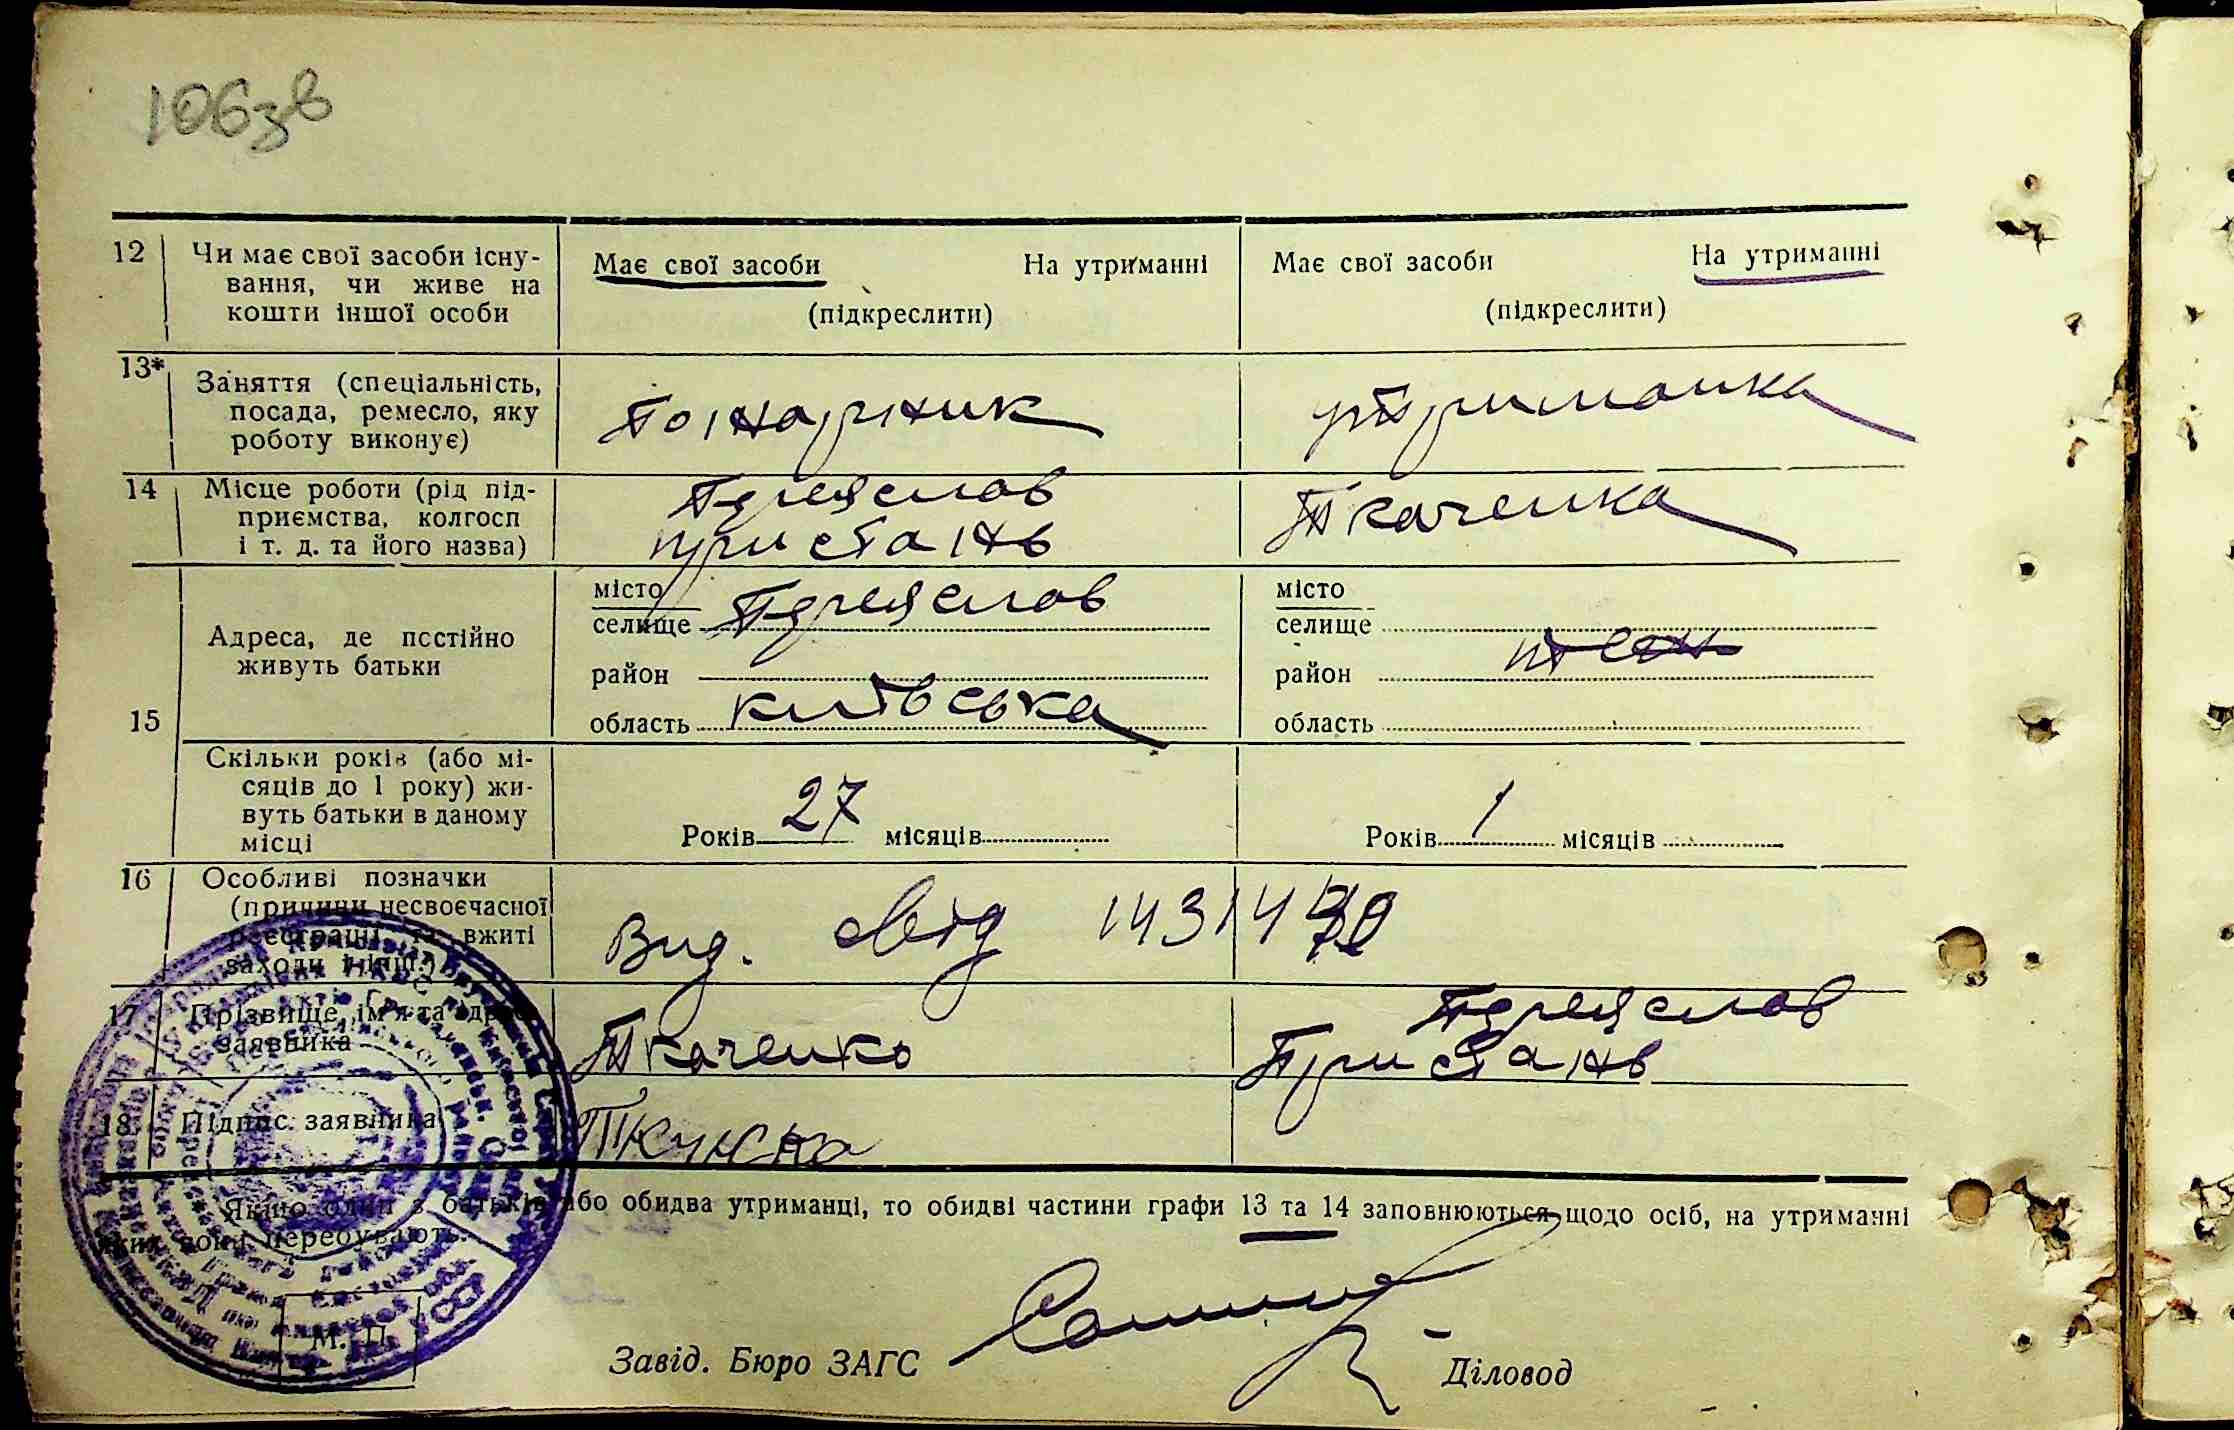 106зв
12 Чи має свої засоби існу-
вання, чи живе на
кошти іншої особи
Має свої засоби На утриманні
(підкреслити)
Має свої засоби На утриманні
(підкреслити)
13* Заняття (спеціальність,
посада, ремесло, яку
роботу виконує)
Пожарник
утриманка
14 Місце роботи (рід під-
приємства, колгосп
і т. д. та його назва)
Переяслов
пристань
Ткаченка
15 Адреса, де постійно
живуть батьки
місто
селище Переяслов
район
область київська
місто
селище
район
область
Скільки років (або мі-
сяців до 1 року) жи-
вуть батьки в даному
місці
Років 27 місяців
Років 1 місяців
16 Особливі позначки
(причини несвоєчасної
реєстрації та вжиті
заходи і інш.)
Вид. свід 14314
17 Прізвище, ім'я та адреса
заявника
Ткаченко
Переяслов
Пристань
18. Підпис заявника
Якщо один з батьків або обидва утриманці, то обидві частини графи 13 та 14 заповнюються щодо осіб, на утриманні
яких вони перебувають.
М. П.
Завід. Бюро ЗАГС
Діловод